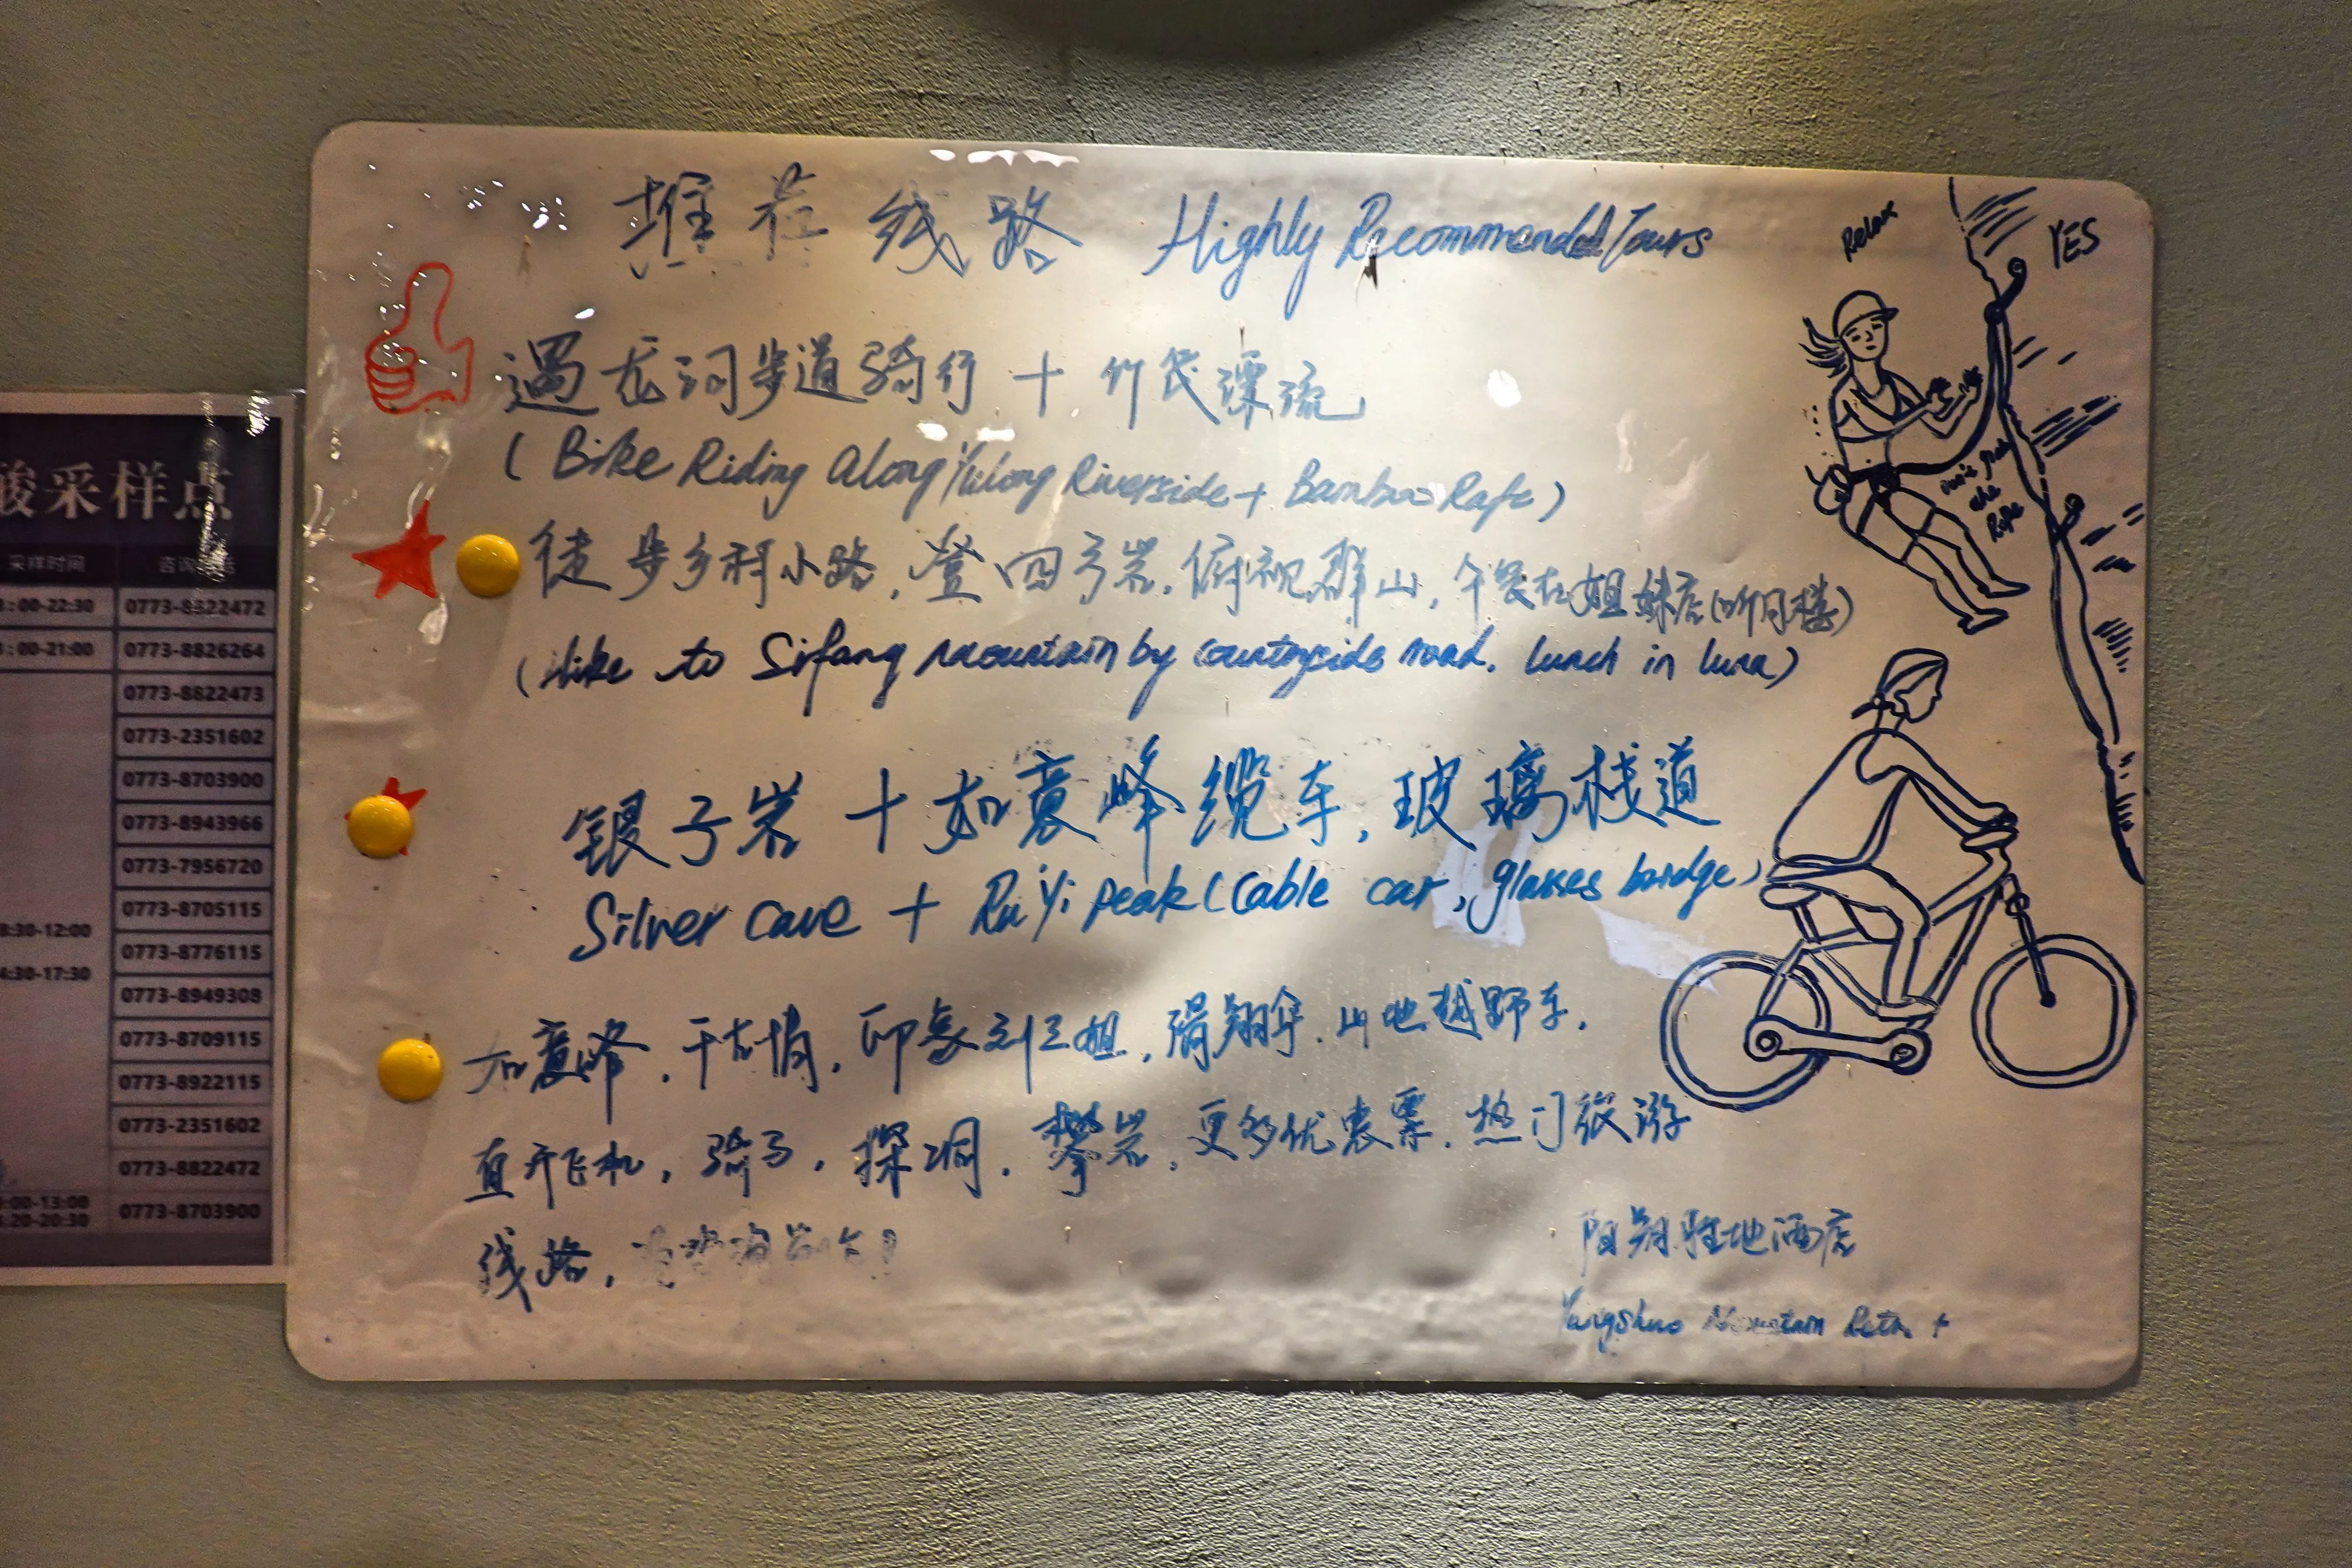 推荐线路 Highly Recommended Tours
Relax
YES
遇龙河步道骑行 + 竹筏漂流
( Bike Riding Along Yulong Riverside + Bamboo Raft )
徒步乡村小路, 登四方岩, 俯视群山, 午餐在姐妹店(听月楼)
( Hike to Sifang mountain by countryside road. lunch in luna )
the
Rope
银子岩 + 如意峰缆车, 玻璃栈道
Silver cave + Ru Yi peak ( Cable car, glasses bridge )
如意峰, 千古情, 印象刘三姐, 滑翔伞, 山地越野车,
直升飞机, 骑马, 探洞, 攀岩, 更多优惠票, 热门旅游
线路,
阳朔胜地酒店
Yangshuo Mountain Retr t
酸采样点
采样时间 咨询电话
:00-22:30 0773-8822472
:00-21:00 0773-8826264
0773-8822473
0773-2351602
0773-8703900
0773-8943966
0773-7956720
0773-8705115
8:30-12:00
0773-8776115
4:30-17:30
0773-8949308
0773-8709115
0773-8922115
0773-2351602
0773-8822472
:00-13:00
:20-20:30
0773-8703900